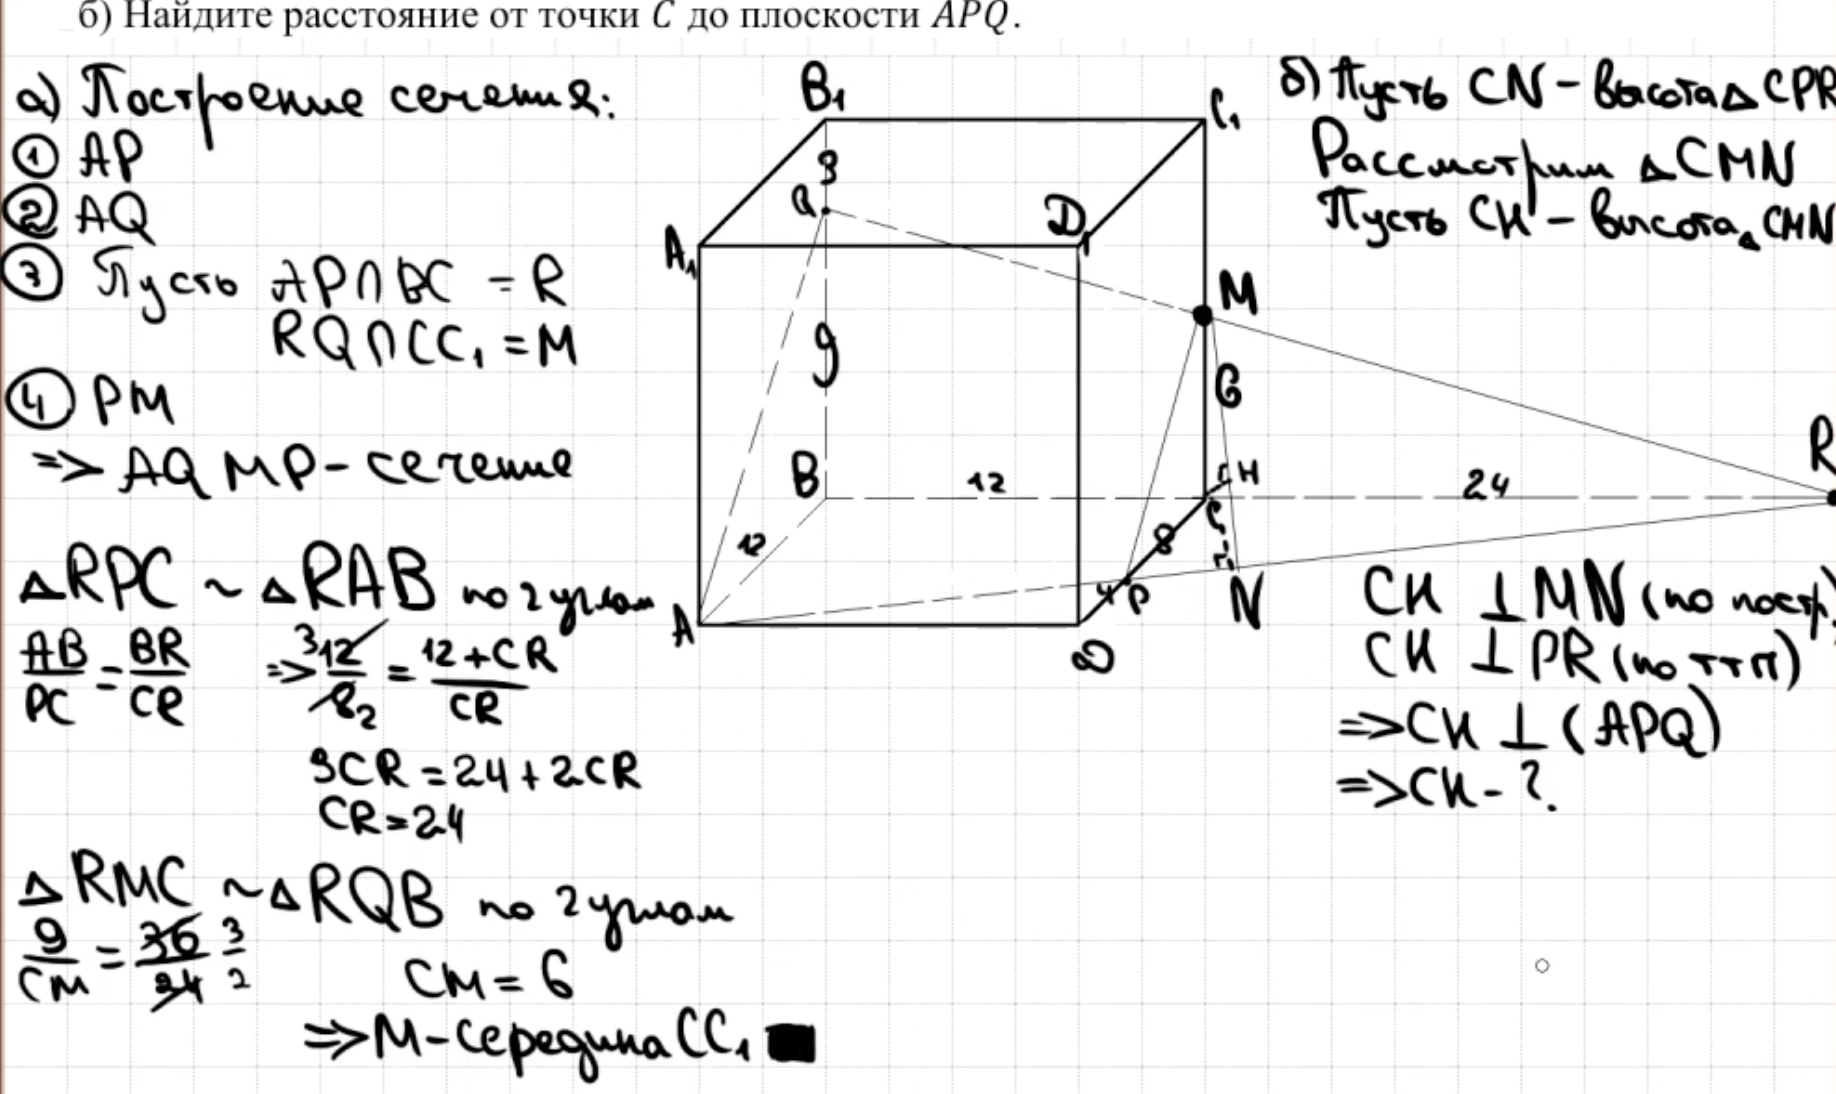 б) Найдите расстояние от точки C до плоскости APQ.
а) Построение сечения:
① AP
② AQ
③ Пусть AP∩BC = R
RQ∩CC₁ = M
④ PM
=> AQMP - сечение
△RPC ~ △RAB по 2 углам
AB/PC = BR/CR => 12/8 = (12+CR)/CR
3 2
3CR = 24 + 2CR
CR = 24
△RMC ~ △RQB по 2 углам
9/CM = 36/24 3/2
CM = 6
=> M - середина CC₁ ■
B₁
C₁
3
Q
D₁
A₁
M
9
6
B
12
H
24
R
C
12
8
4
P
N
A
D
б) Пусть CN - высота △CPR
Рассмотрим △CMN
Пусть CH - высота △CMN
CH ⊥ MN (по постр)
CH ⊥ PR (по ТТП)
=> CH ⊥ (APQ)
=> CH - ?